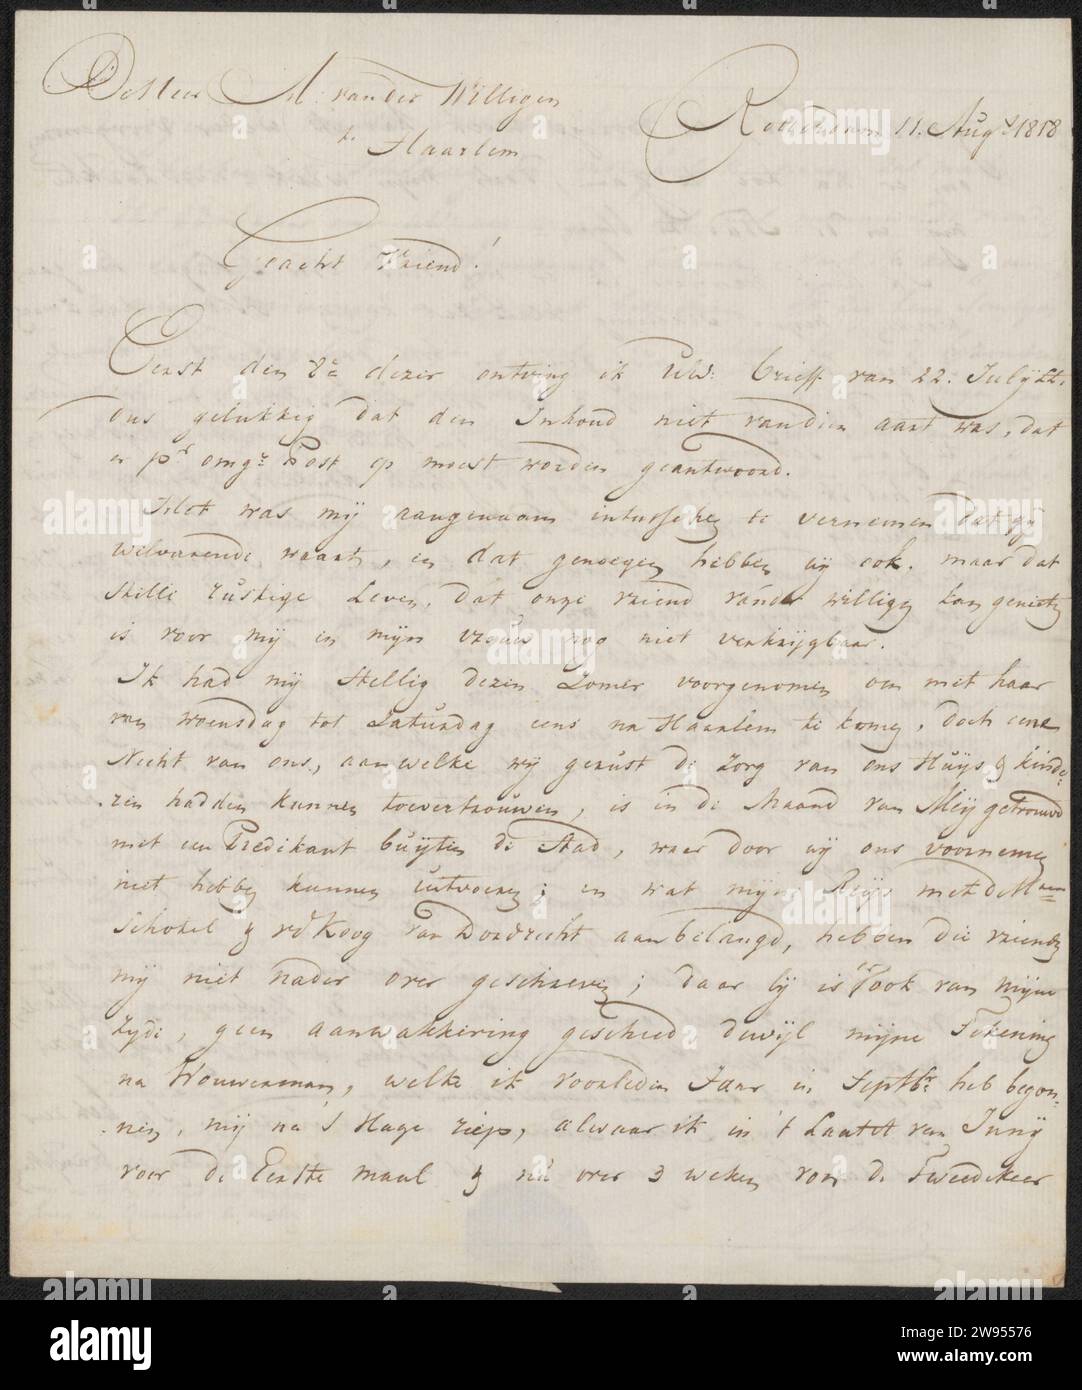 De Heer A. van der Willigen
te Haarlem
Rotterdam 11. Augs. 1818
Geacht Vriend!
Eerst den 8e dezer ontving ik UEd. brieff van 22. July ll.
ons gelukkig dat den Inhoud niet van dien aart was, dat
er pr omge Post op moest worden geantwoord.
Het was mij aangenaam intusschen te vernemen dat gij
welvarende waart, en dat genoegen hebben wij ook. maar dat
stille rustige Leven, dat onze vriend van der willigen kan genieten
is voor mij en mijn vrouw nog niet verkrijgbaar.
Ik had mij stellig dezen Zomer voorgenomen om met haar
van woensdag tot Saturdag eens na Haarlem te komen, doch eene
Nicht van ons, aan welke wij gerust de Zorg van ons Huijs & kinde-
ren hadden kunnen toevertrouwen, is in de Maand van Meij getrouwd
met een Predikant buijten de Stad, waar door wij ons voornemen
niet hebben kunnen uitvoeren; en wat mijne Reijs met de Hren
Schotel & vd Koog van Dordrecht aanbelangd, hebben die vrienden
mij niet nader over geschreven; daar bij is er ook van mijne
Zyde, geen aanwakkering geschied dewijl mijne Tekening
na Wouwerman, welke ik voorleden Jaar in Septbr heb begon-
nen, mij na 's Hage riep, alwaar ik in 't Laatst van Junij
voor de Eerste maal & nu over 3 weken voor de Tweedekeer
alamy
Image ID: 2W95576
www.alamy.com